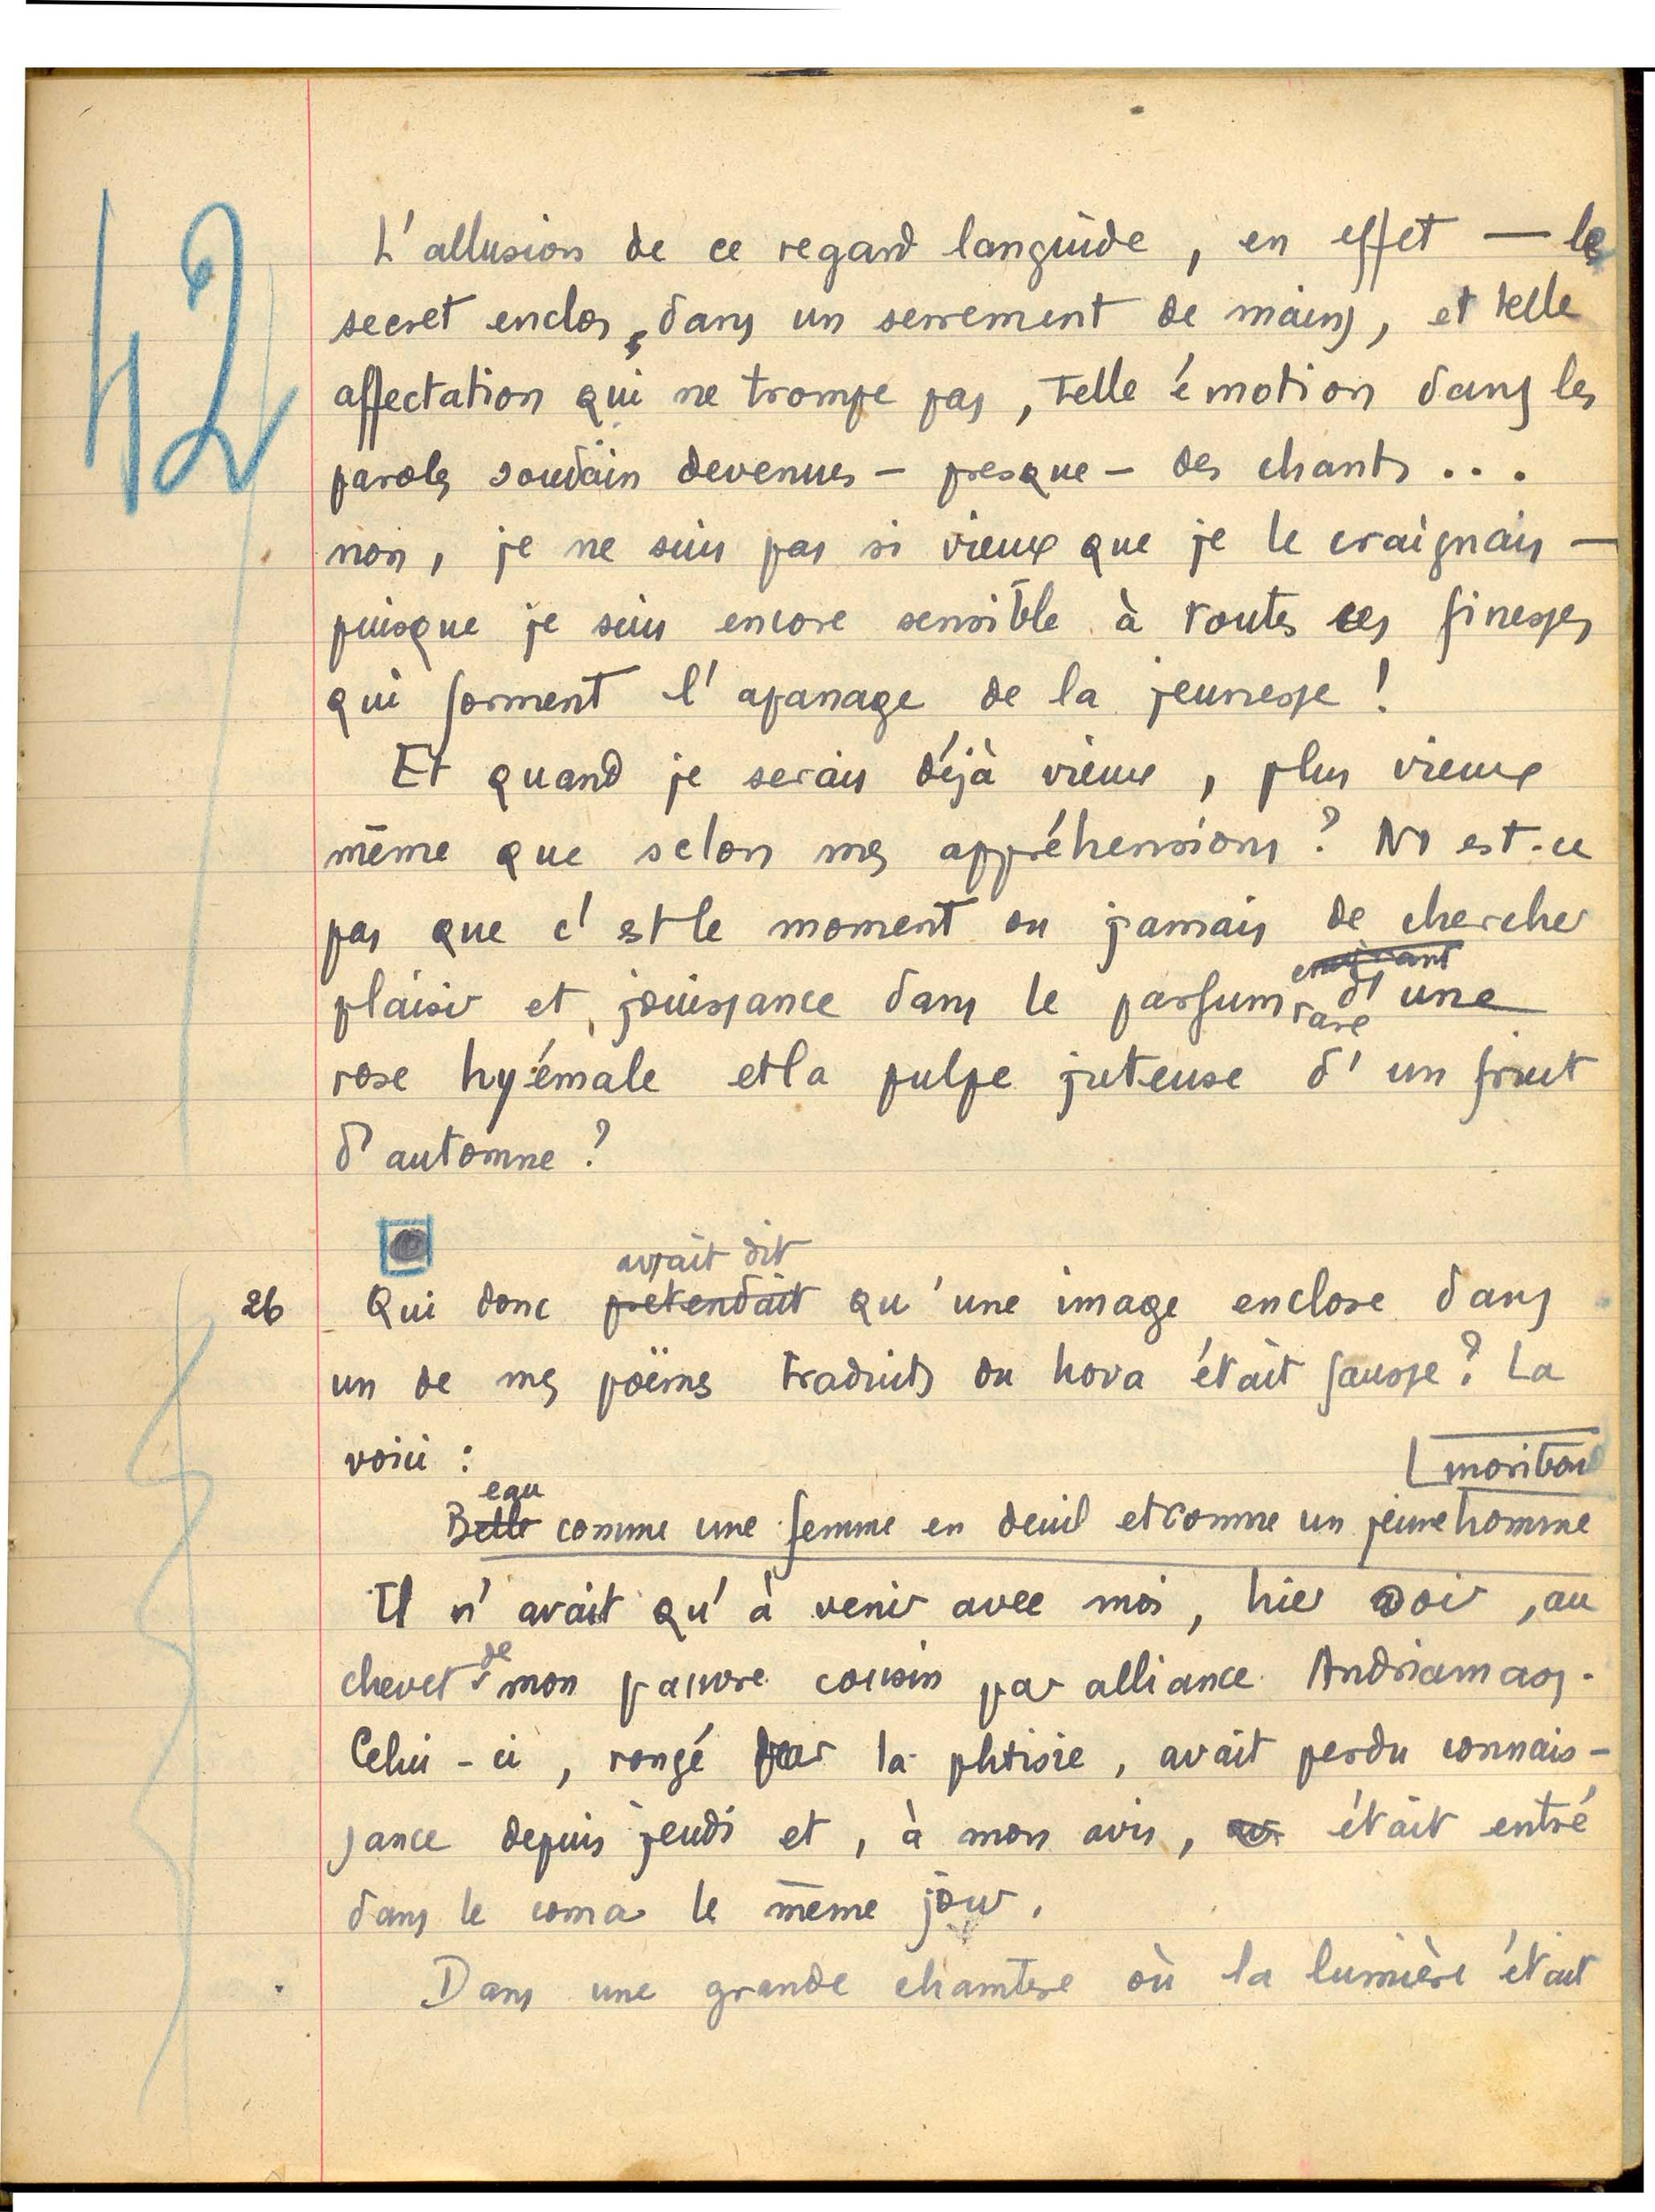 42
L'allusion de ce regard languide, en effet — le
secret enclos dans un serrement de mains, et telle
affectation qui ne trompe pas, telle émotion dans les
paroles soudain devenues - presque - des chants...
non, je ne suis pas si vieux que je le craignais —
puisque je suis encore sensible à toutes ces finesses
qui forment l'apanage de la jeunesse !
Et quand je serais déjà vieux, plus vieux
même que selon mes appréhensions ? N'est-ce
pas que c'est le moment ou jamais de chercher
plaisir et jouissance dans le parfum rare d'une
rose hyémale et la pulpe juteuse d'un fruit
d'automne ?
avait dit
26 Qui donc pretendait qu'une image enclose dans
un de mes poëmes traduits du hova était fausse ? La
voici :
moribond
eau
Belle comme une femme en deuil et comme un jeune homme
Il n'avait qu'à venir avec moi, hier soir, au
chevet de mon pauvre cousin par alliance Andriamas.
Celui-ci, rongé par la phtisie, avait perdu connais-
sance depuis jeudi et, à mon avis, était entré
dans le coma le même jour.
Dans une grande chambre où la lumière était